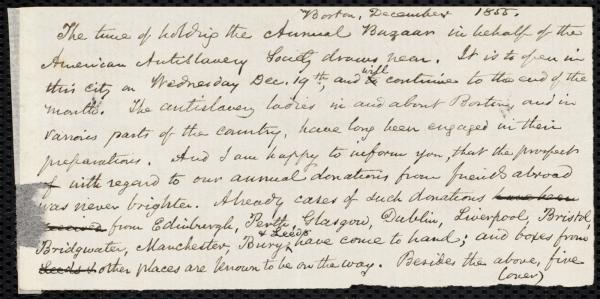 Boston, December 1855.
The time of holding the Annual Bazaar in behalf of the
American Antislavery Society draws near. It is to open in
this city on Wednesday Dec. 19th, and will continue to the end of the
month. The antislavery ladies in and about Boston, and in
various parts of the country, have long been engaged in their
preparations. And I am happy to inform you, that the prospect
of with regard to our annual donations from friends abroad
was never brighter. Already cases of such donations have been
received from Edinburgh, Perth, Glasgow, Dublin, Liverpool, Bristol,
Bridgwater, Manchester, Bury, & Leeds have come to hand; and boxes from
Leeds & other places are known to be on the way. Besides the above, five
(over)